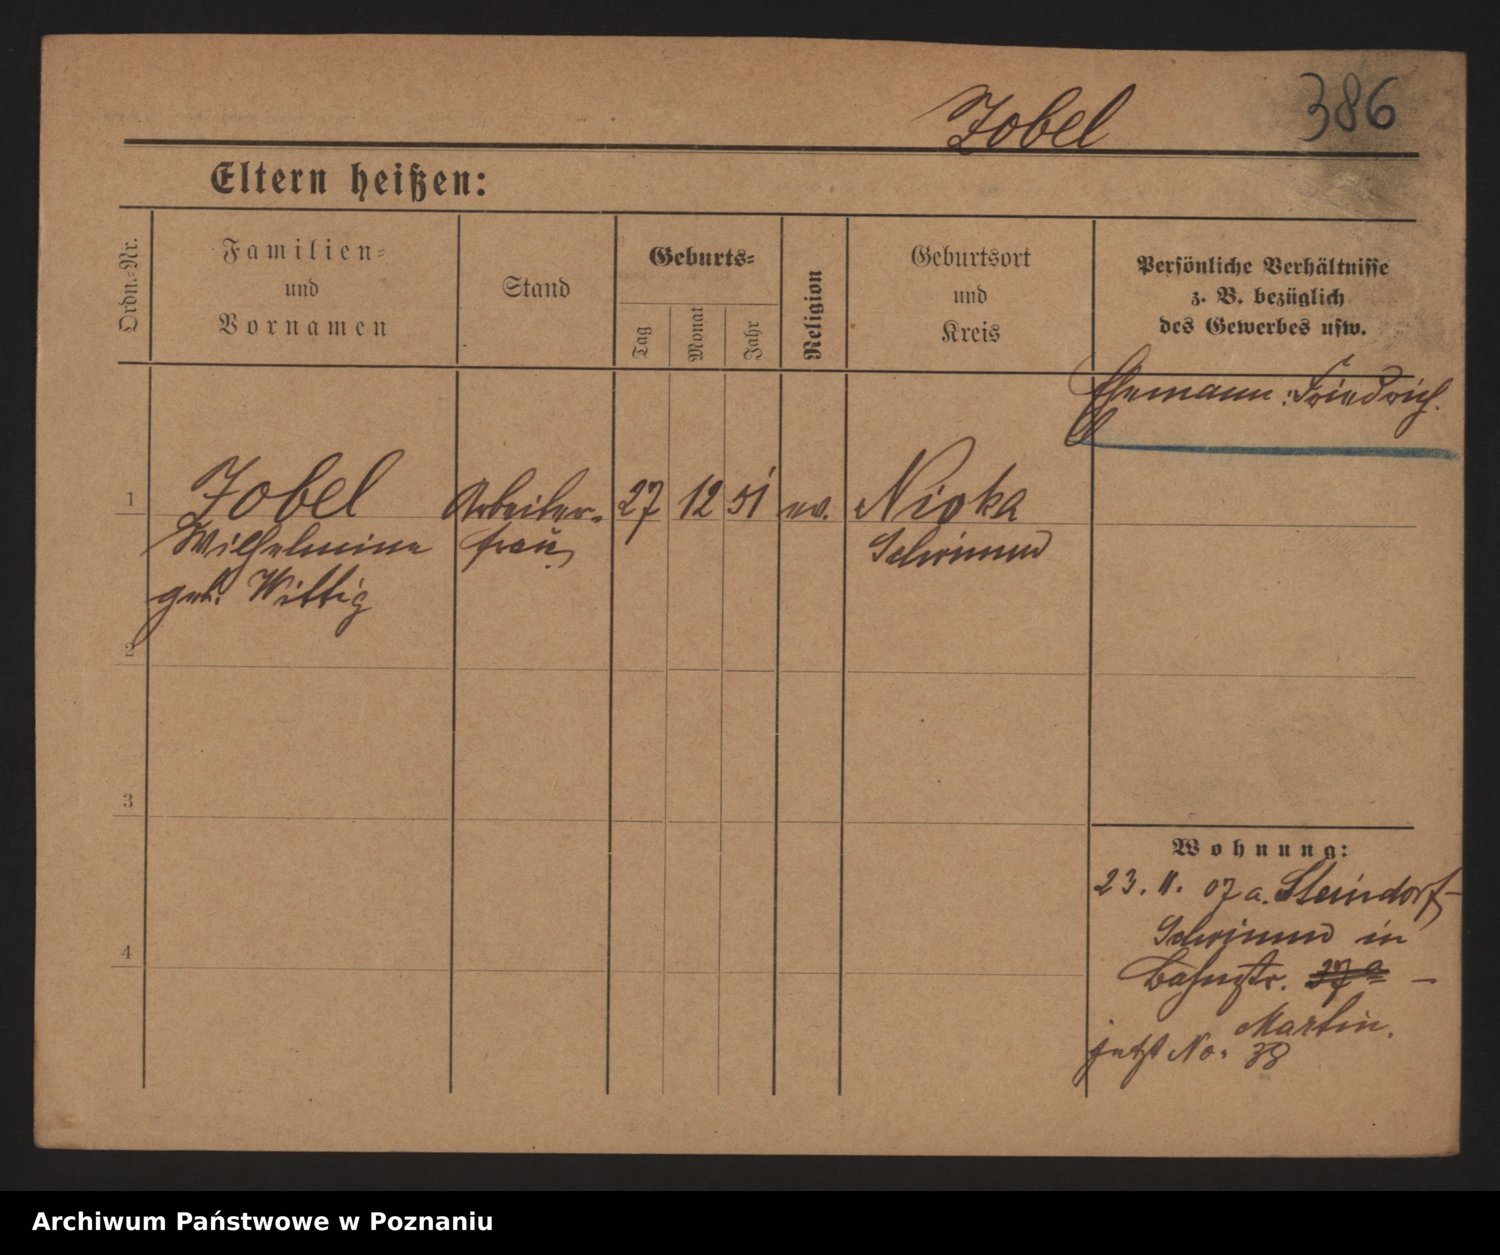 Zobel
386
Eltern heißen:
Ordn.-Nr.
Familien-
und
Vornamen
Stand
Geburts-
Tag
Monat
Jahr
Religion
Geburtsort
und
Kreis
Persönliche Verhältnisse
z. B. bezüglich
des Gewerbes usw.
Ehemann: Friedrich.
1
Zobel
Arbeiter-
27
12
51
ev.
Nioka
Wilhelmine
frau
Schrimm
geb. Wittig
2
3
4
Wohnung:
23. 11. 07 a. Steindorf-
Schrimm in
Bahnstr. 37a –
Martin.
jetzt No. 38
Archiwum Państwowe w Poznaniu